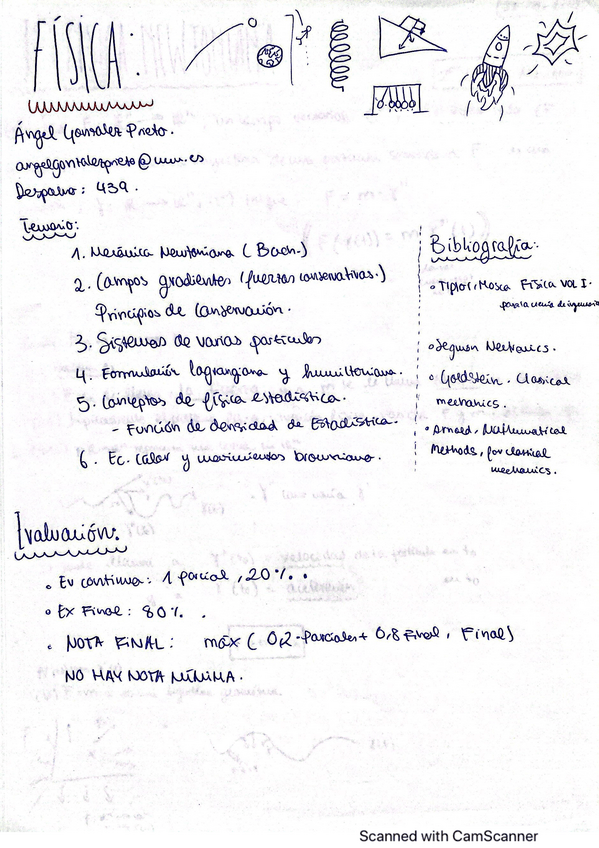 FÍSICA:
Ángel González Prieto.
angelgonzalezprieto@ucm.es
Despacho: 439.
Temario:
1. Mecánica Newtoniana (Bach.)
2. Campos gradientes (fuerzas conservativas.)
Principios de conservación.
3. Sistemas de varias partículas
4. Formulación lagrangiana y hamiltoniana.
5. Conceptos de física estadística.
- Función de densidad de Estadística.
6. Ec. calor y movimientos browniano.
Bibliografía:
• Tipler, Mosca Física VOL I.
para la ciencia de ingeniería
• Seguon Mechanics.
• Goldstein. Classical
mechanics.
• Arnold. Mathematical
Methods, for classical
mechanics.
Evaluación:
• Ev continua: 1 parcial, 20%.
• Ex Final: 80%.
• NOTA FINAL: máx ( 0,2·Parciales + 0,8 Final, Final)
NO HAY NOTA MÍNIMA.
Scanned with CamScanner